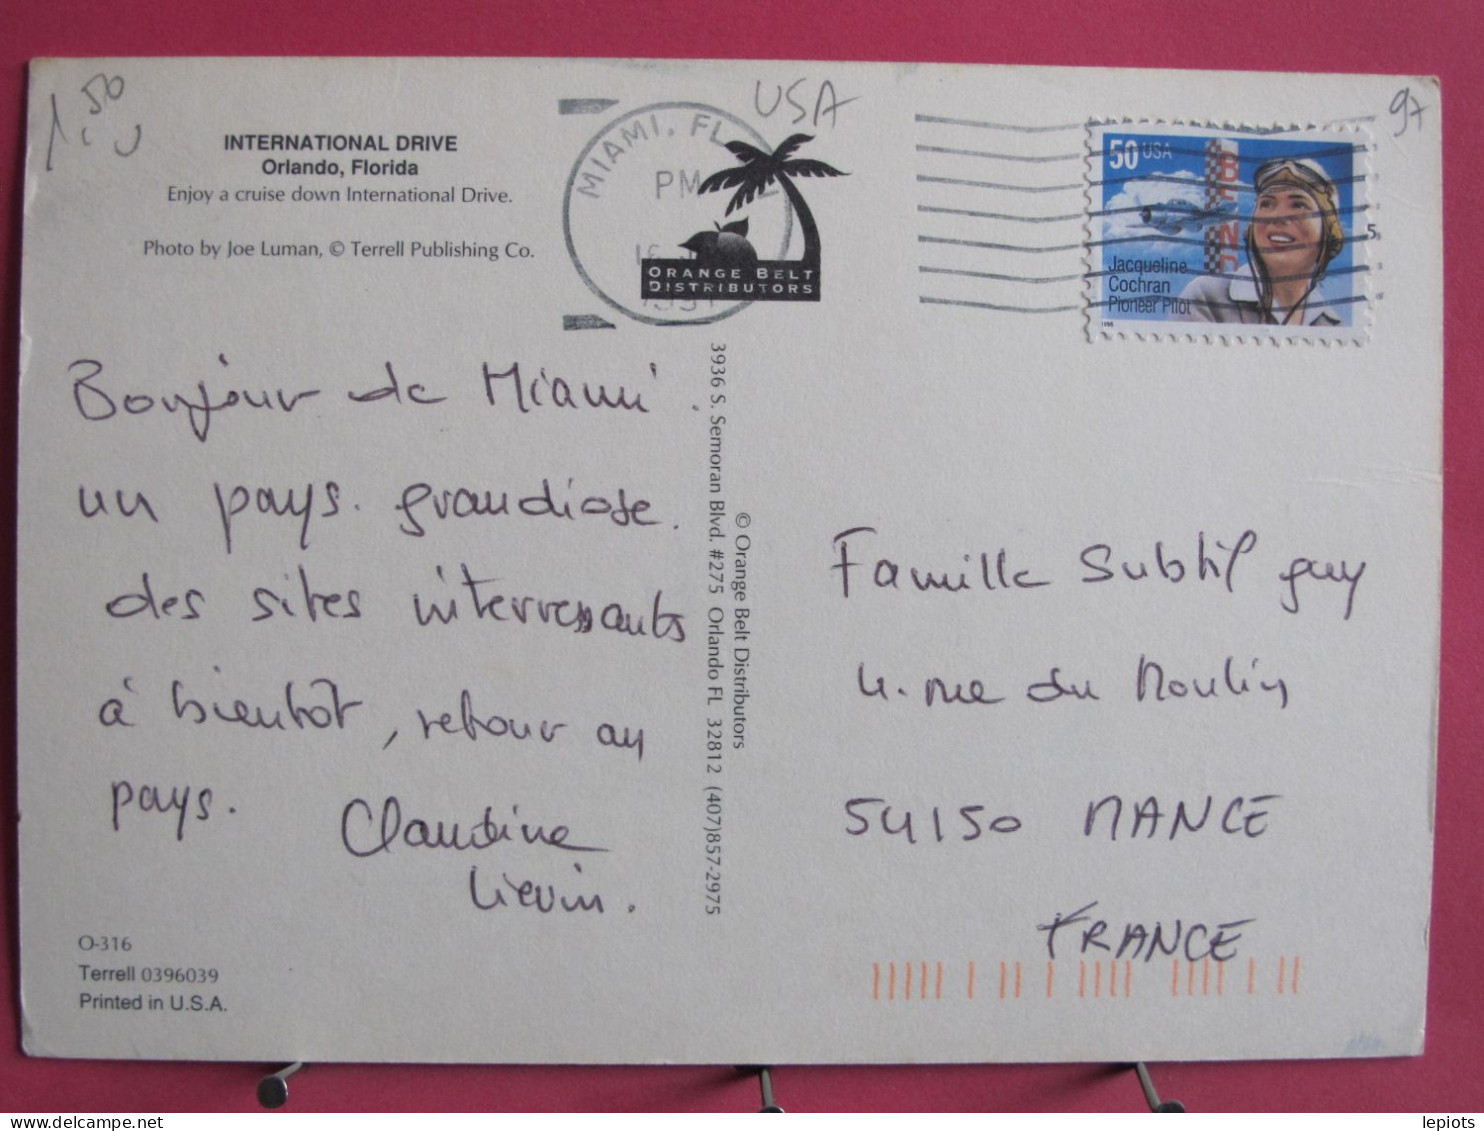 1.50
USA
97
INTERNATIONAL DRIVE
Orlando, Florida
Enjoy a cruise down International Drive.
Photo by Joe Luman, © Terrell Publishing Co.
MIAMI, FL
PM
16
ORANGE BELT
DISTRIBUTORS
50 USA
BENDIX
Jacqueline
Cochran
Pioneer Pilot
1996
Bonjour de Miami.
un pays. grandiose.
des sites interressants
à bientôt, retour au
pays.
Claudine
Lievin.
© Orange Belt Distributors
3936 S. Semoran Blvd. #275 Orlando FL 32812 (407)857-2975
Famille Subtil guy
4. rue du Moulin
54150 MANCE
FRANCE
O-316
Terrell 0396039
Printed in U.S.A.
lepiots